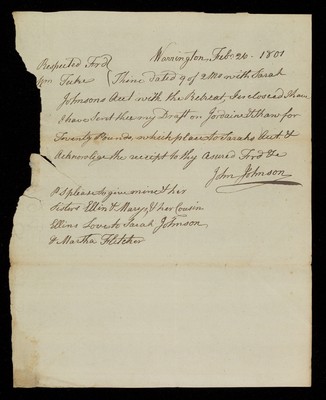 Warrington Feb: 26 - 1801
Respected Frd
Wm Tuke ( Thine dated 9 of 2 Mo with Sarah
Johnsons Acct with the Retreat, I recd inclosed I have
I have Sent thee my Draft on Jordaine & Shaw for
Twenty Pounds, which place to Sarahs Acct &
Acknowlige the receipt to thy Assured Frd &c
John Johnson
PS please to give mine & her
Sisters Ellin & Mary, & her Cousin
Ellins Love to Sarah Johnson
& Martha Fletcher